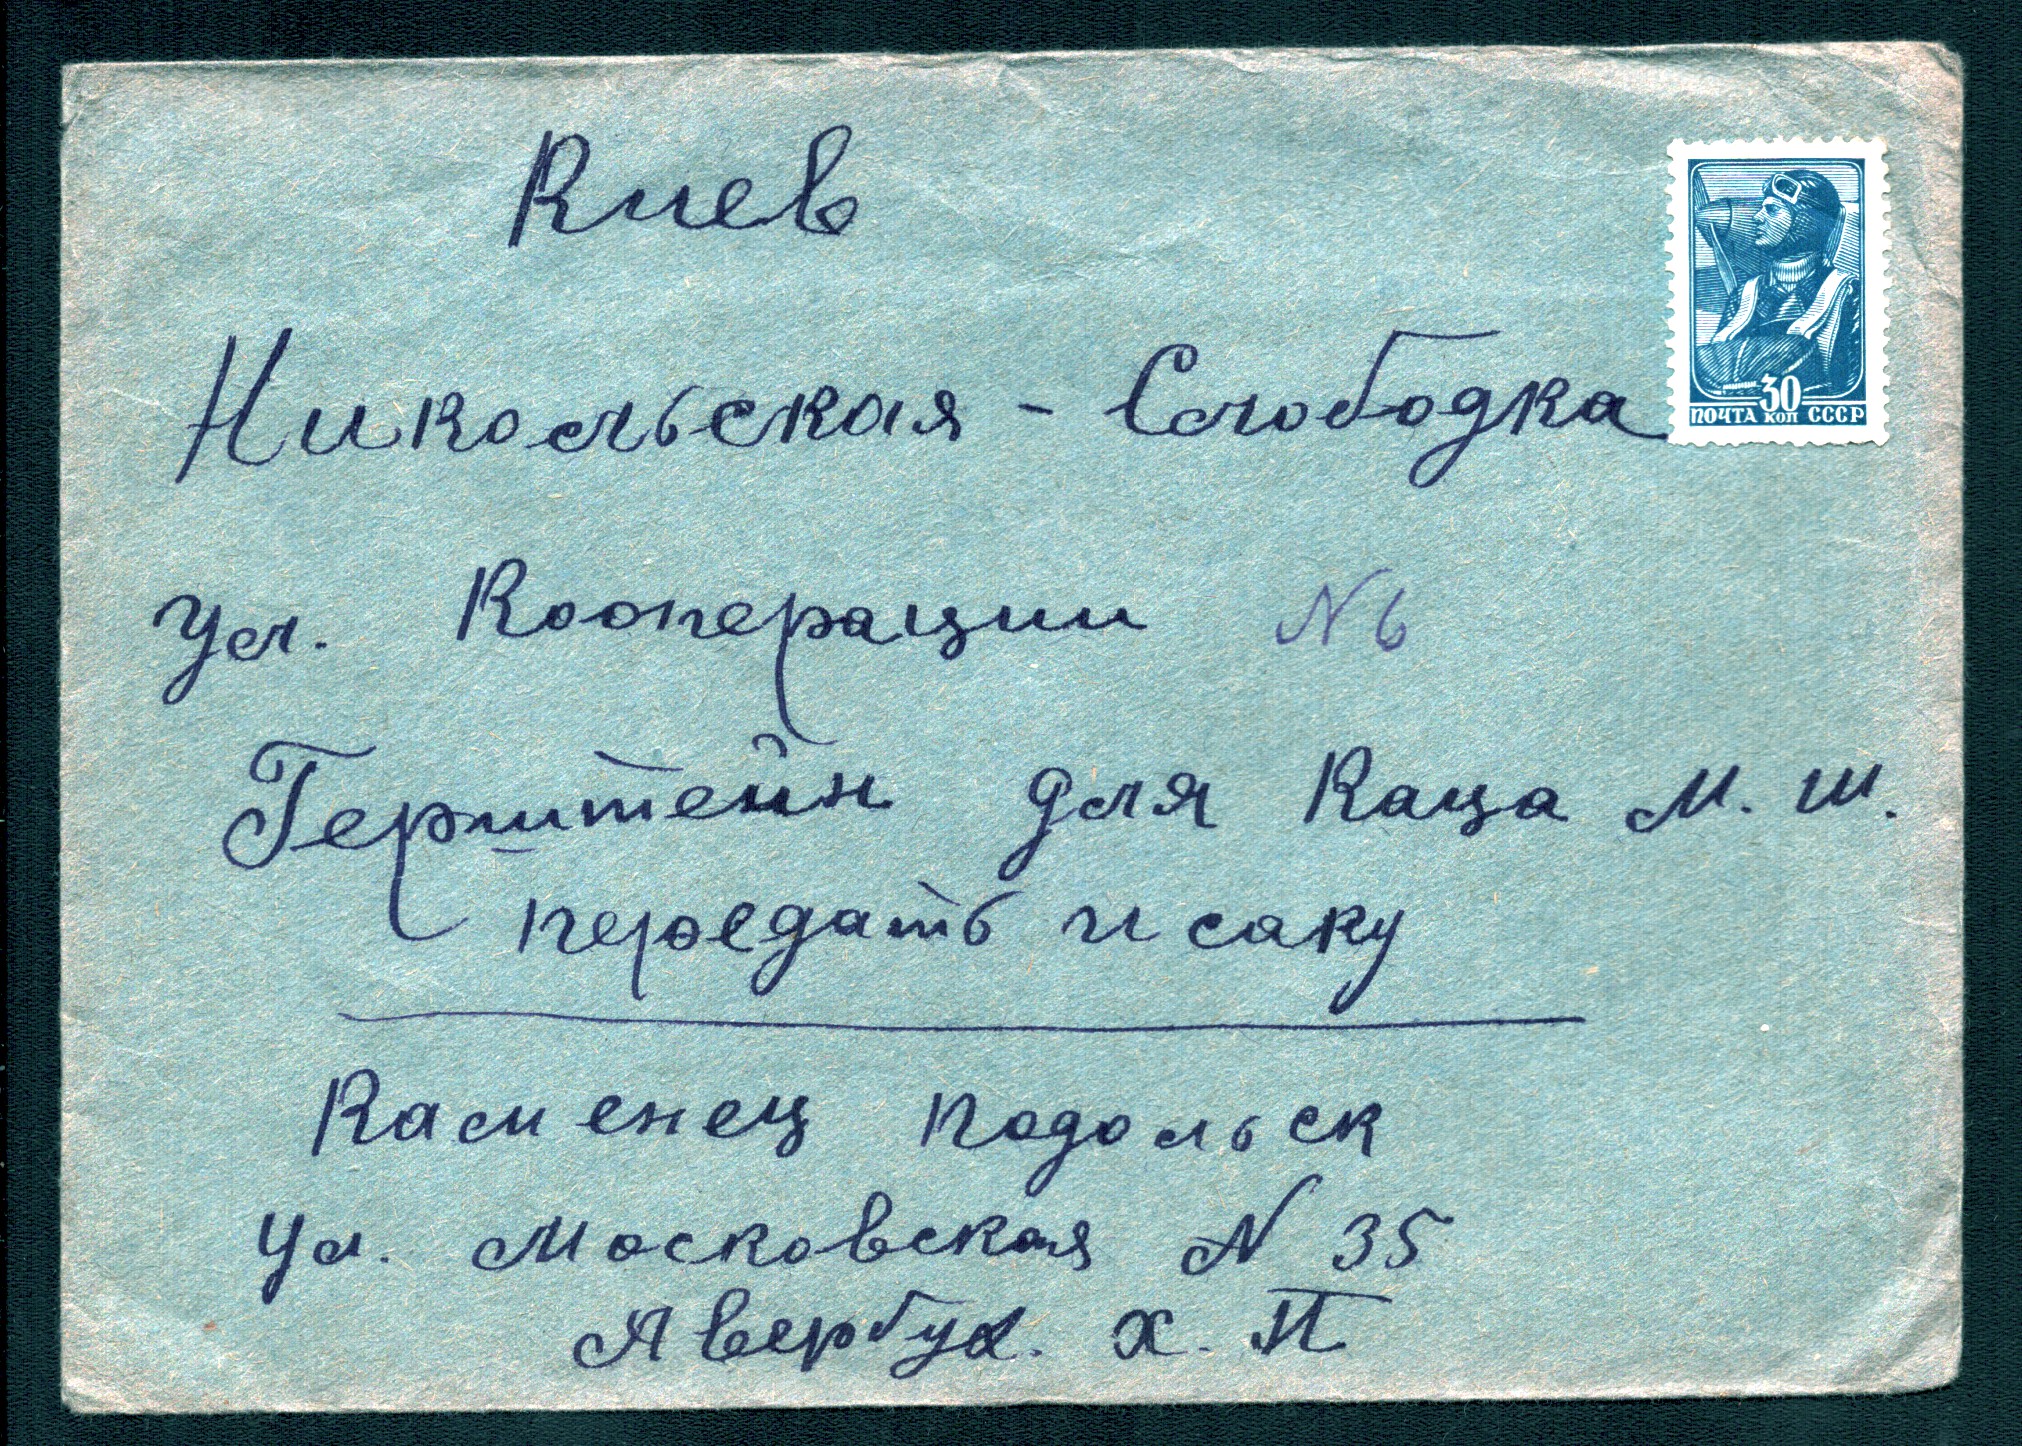 Киев
Никольская - Слободка
Ул. Кооперации N 6
Герштейн для Каца М. Ш.
передать исаку
Каменец подольск
Ул. Московская N 35
Авербух. Х. П
30
ПОЧТА КОП СССР